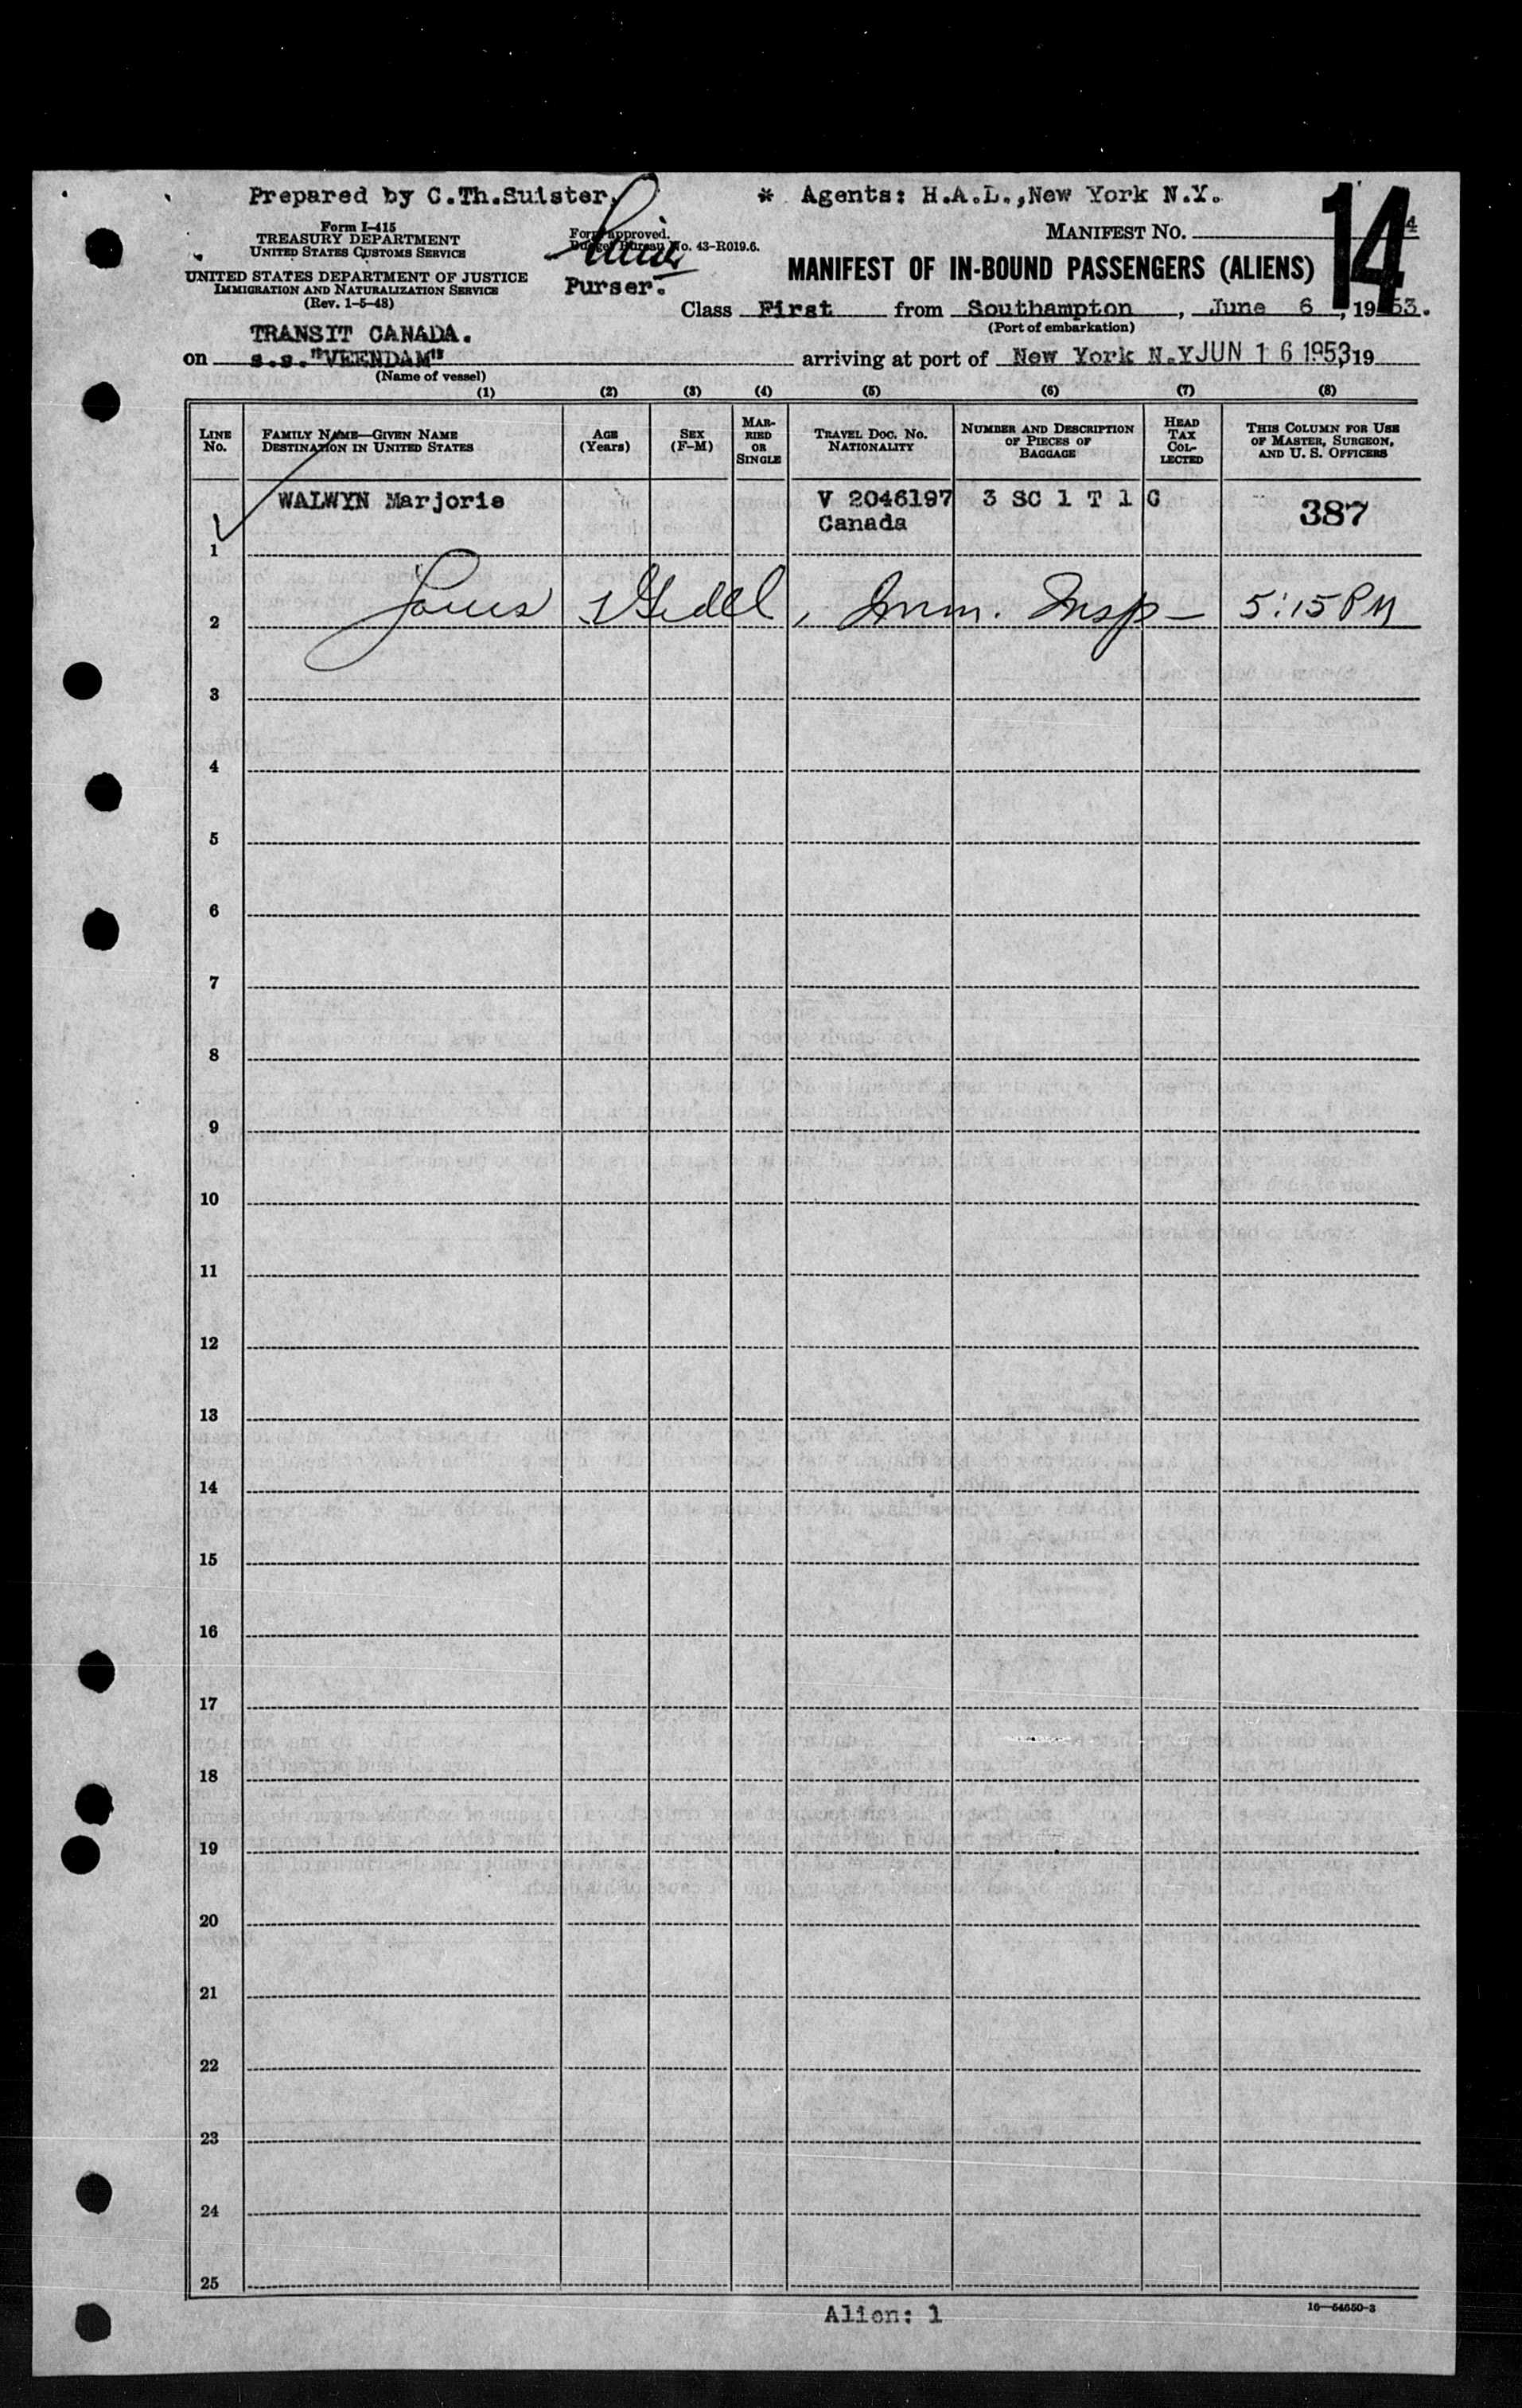 Prepared by C.Th.Suister.
* Agents: H.A.L.,New York N.Y.
Form I-415
TREASURY DEPARTMENT
UNITED STATES CUSTOMS SERVICE
UNITED STATES DEPARTMENT OF JUSTICE
IMMIGRATION AND NATURALIZATION SERVICE
(Rev. 1-5-48)
Form approved.
Budget Bureau No. 43-R019.6.
Purser.
MANIFEST NO. 4
14
MANIFEST OF IN-BOUND PASSENGERS (ALIENS)
Class First from Southampton, June 6, 1953.
(Port of embarkation)
TRANSIT CANADA.
on s.s. "VEENDAM" arriving at port of New York N.Y JUN 16 1953 19
(Name of vessel)
(1) (2) (3) (4) (5) (6) (7) (8)
LINE No.
FAMILY NAME—GIVEN NAME DESTINATION IN UNITED STATES
AGE (Years)
SEX (F-M)
MARRIED OR SINGLE
TRAVEL DOC. NO. NATIONALITY
NUMBER AND DESCRIPTION OF PIECES OF BAGGAGE
HEAD TAX COLLECTED
THIS COLUMN FOR USE OF MASTER, SURGEON, AND U. S. OFFICERS
WALWYN Marjorie V 2046197 3 SC 1 T 1 C 387
Canada
1
2 Louis , Imm. Insp— 5:15 PM
3
4
5
6
7
8
9
10
11
12
13
14
15
16
17
18
19
20
21
22
23
24
25
Alien: 1
16—54650-3